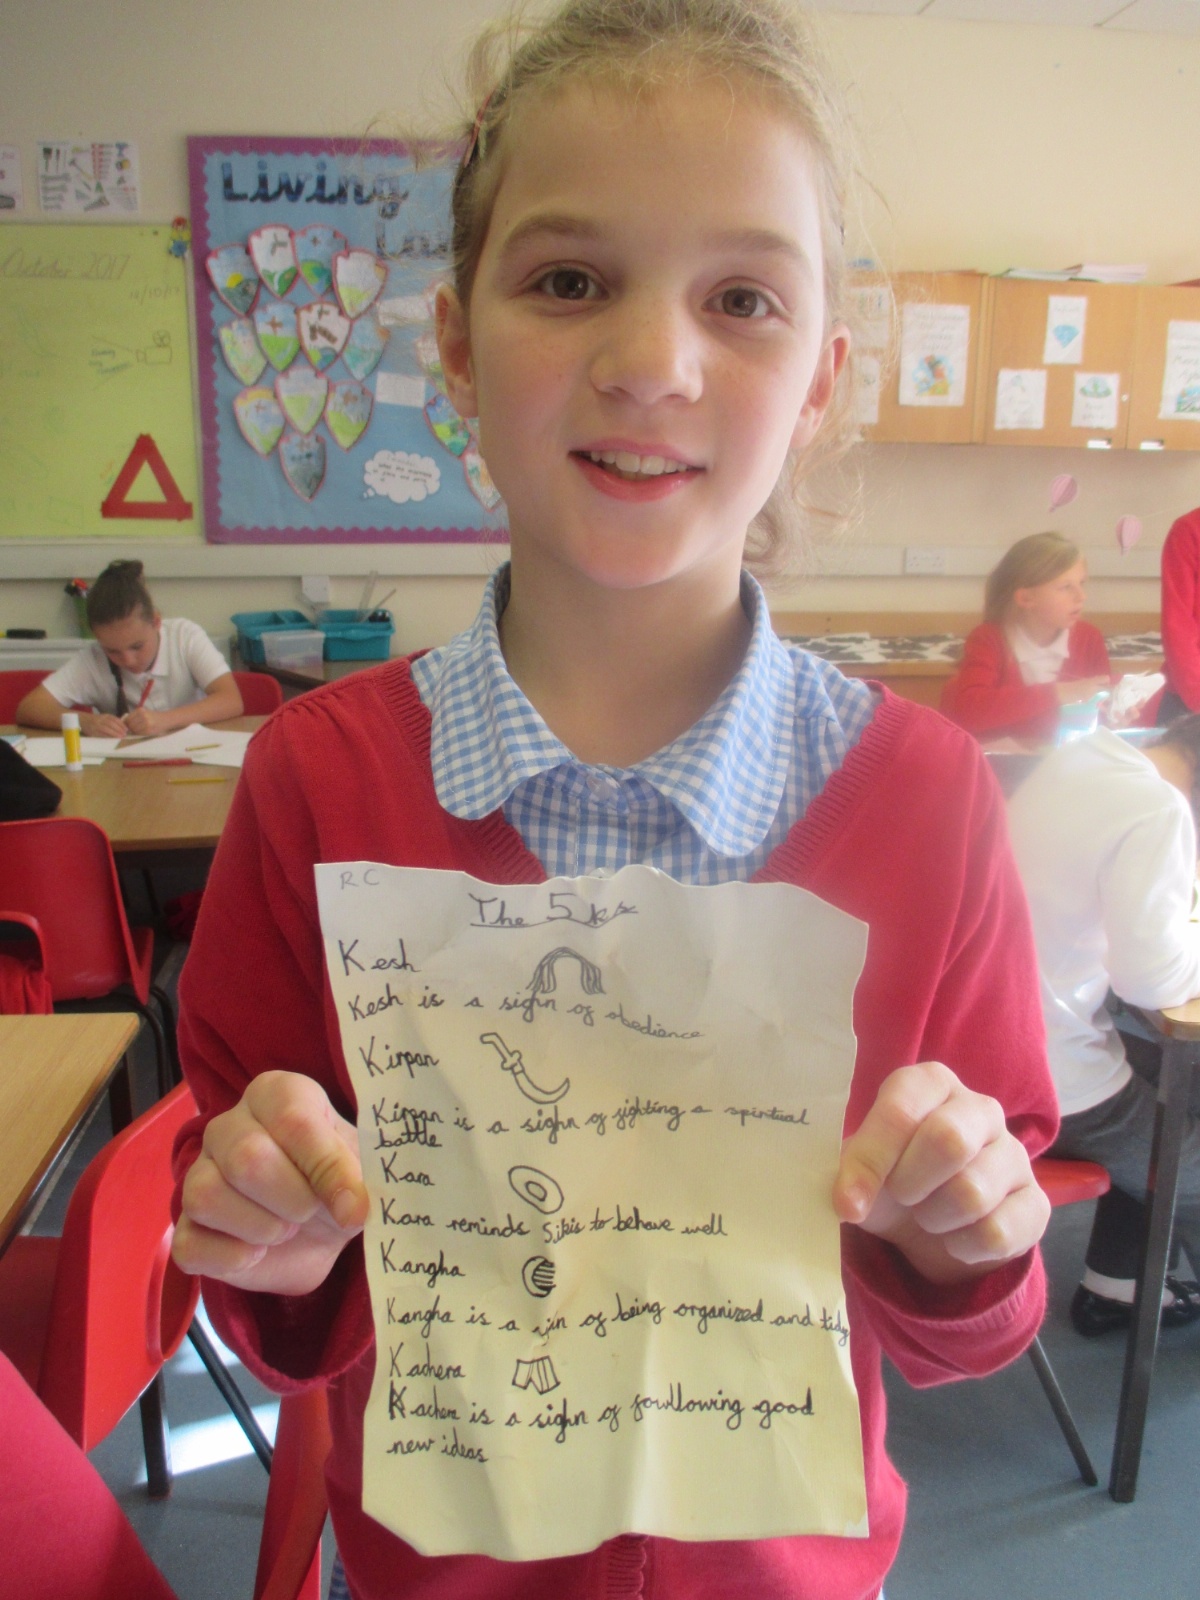 Living
October 2017
RC
The 5 ks
Kesh
Kesh is a sighn of obedience
Kirpan
Kirpan is a sighn of fighting a spiritual
battle
Kara
Kara reminds Sikis to behave well
Kangha
Kangha is a sin of being organized and tidy
Kachera
Kachera is a sighn of fowllowing good
new ideas